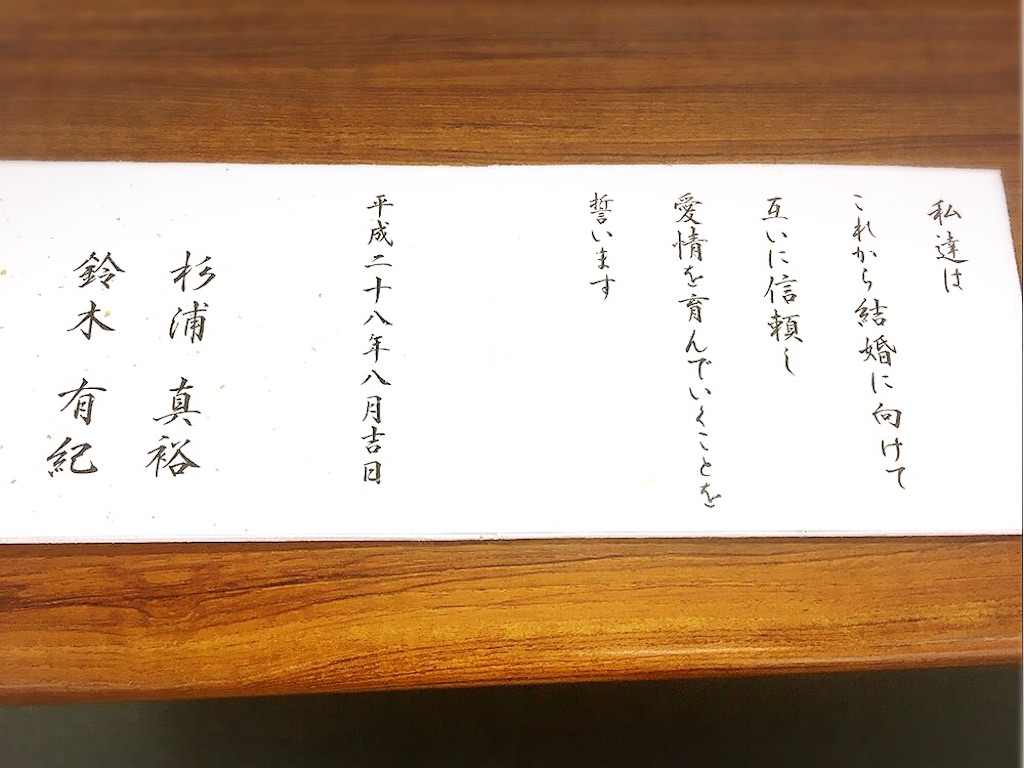 私達は
これから結婚に向けて
互いに信頼し
愛情を育んでいくことを
誓います
平成二十八年八月吉日
杉浦 真裕
鈴木 有紀